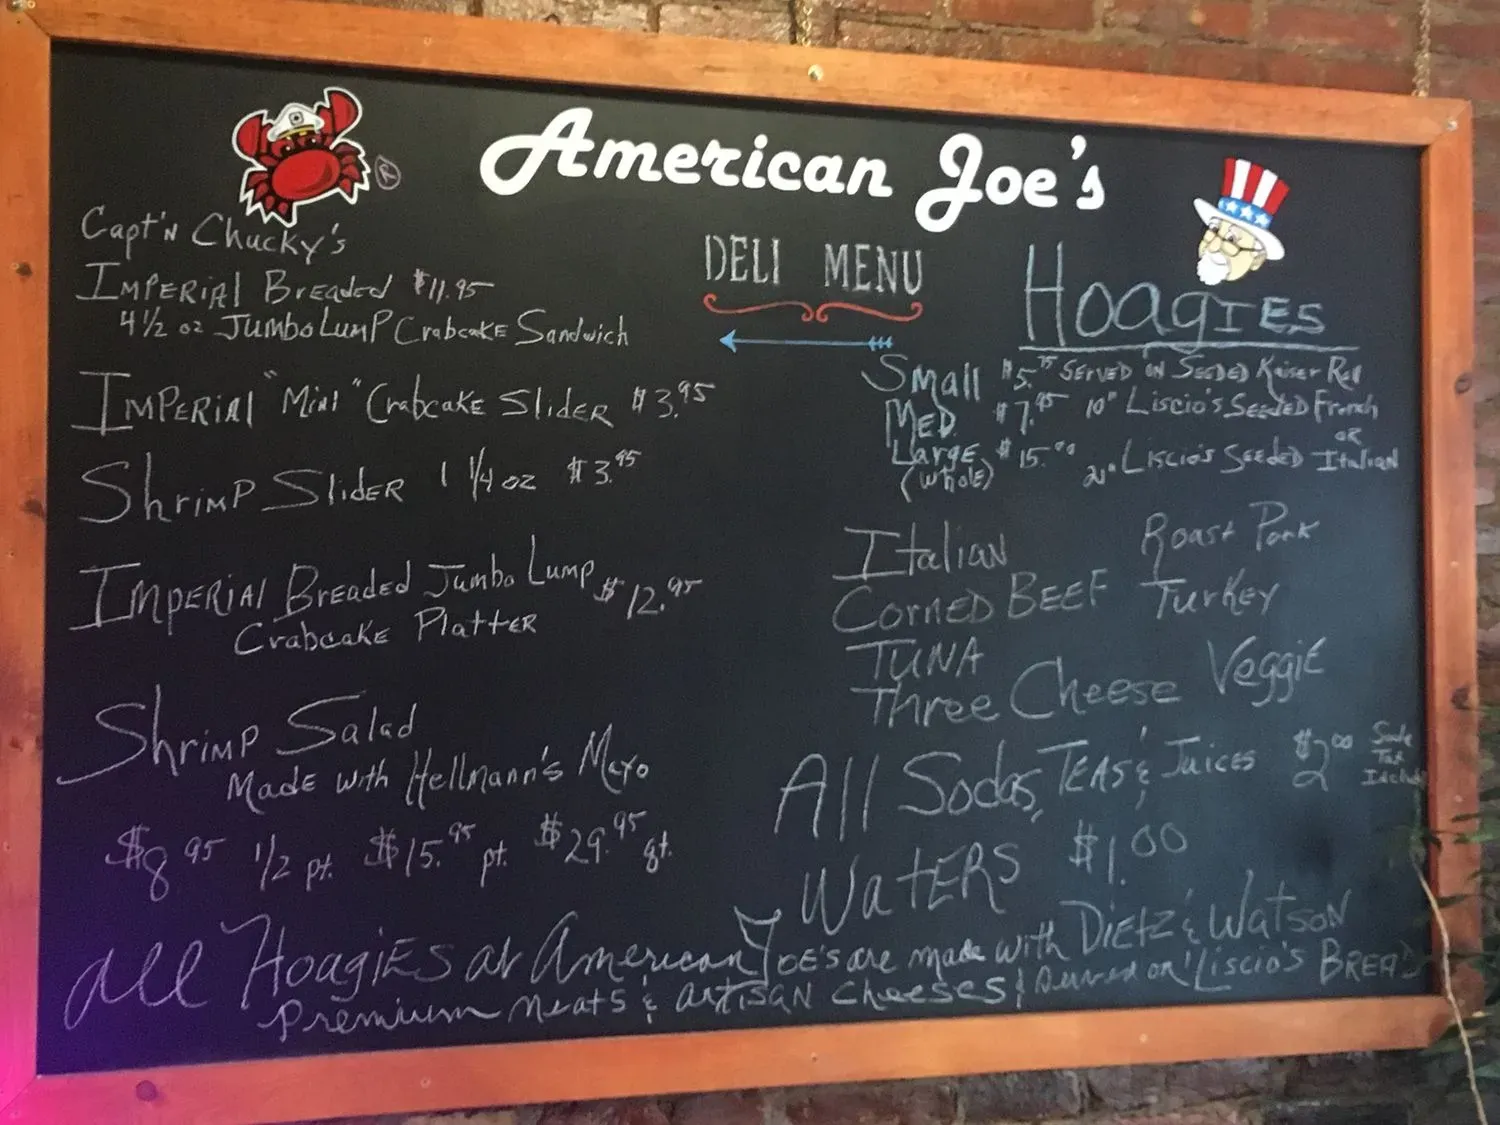 American Joe's
DELI MENU
®
Capt'n Chucky's
Imperial Breaded $11.95
4 1/2 oz Jumbo Lump Crabcake Sandwich
Imperial "Mini" Crabcake Slider $3.95
Shrimp Slider 1 1/4 oz $3.95
Imperial Breaded Jumbo Lump $12.95
Crabcake Platter
Shrimp Salad
Made with Hellmann's Mayo
$8.95 1/2 pt. $15.95 pt. $29.95 qt.
Hoagies
Small $5.75 Served on Seeded Kaiser Roll
Med. $7.95 10" Liscio's Seeded French
or
Large $15.00 21" Liscio's Seeded Italian
(whole)
Italian Roast Pork
Corned Beef Turkey
Tuna Veggie
Three Cheese
All Sodas, Teas & Juices $2.00 Sale
Tax
Included
Waters $1.00
All Hoagies at American Joe's are made with Dietz & Watson
Premium Meats & Artisan Cheeses & Served on Liscio's Bread